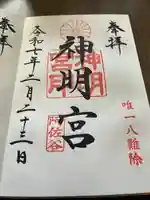 奉拝
唯一八難除
神明宮
阿佐谷
令和七年二月二十三日
奉拝